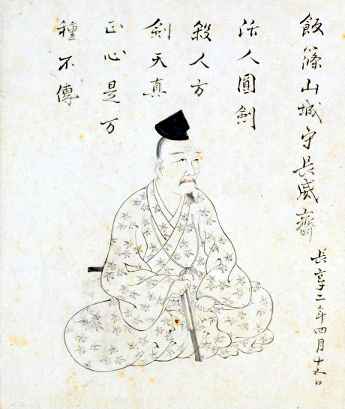 飯篠山城守長威齋
長享二年四月十五日
活人圓劍
殺人方
劍天真
正心是万
種不傳